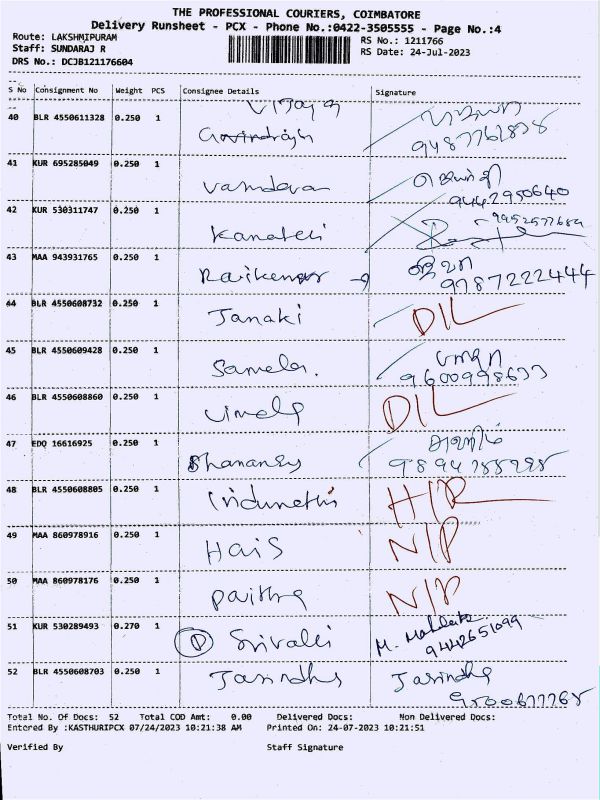 THE PROFESSIONAL COURIERS, COIMBATORE
Delivery Runsheet - PCX - Phone No.:0422-3505555 - Page No.:4
Route: LAKSHMIPURAM
RS No.: 1211766
Staff: SUNDARAJ R
RS Date: 24-Jul-2023
DRS No.: DCJB121176604
S No Consignment No Weight PCS Consignee Details Signature
Vijaya
40 BLR 4550611328 0.250 1 Govindrajn
41 KUR 695285049 0.250 1 Vamdevan
9442950640
42 KUR 530311747 0.250 1 Kanateri
43 MAA 943931765 0.250 1 Rajkumar
9787222444
44 BLR 4550608732 0.250 1 Janaki DIL
45 BLR 4550609428 0.250 1
46 BLR 4550608860 0.250 1 Vimala DIL
47 EDQ 16616925 0.250 1
48 BLR 4550608805 0.250 1 Indumathi
49 MAA 860978916 0.250 1 Hais N/P
50 MAA 860978176 0.250 1 N/P
51 KUR 530289493 0.270 1 D Srivalli
9442651099
52 BLR 4550608703 0.250 1 Jasindhs Jasindhs
Total No. Of Docs: 52 Total COD Amt: 0.00 Delivered Docs: Non Delivered Docs:
Entered By :KASTHURIPCX 07/24/2023 10:21:38 AM Printed On: 24-07-2023 10:21:51
Verified By Staff Signature